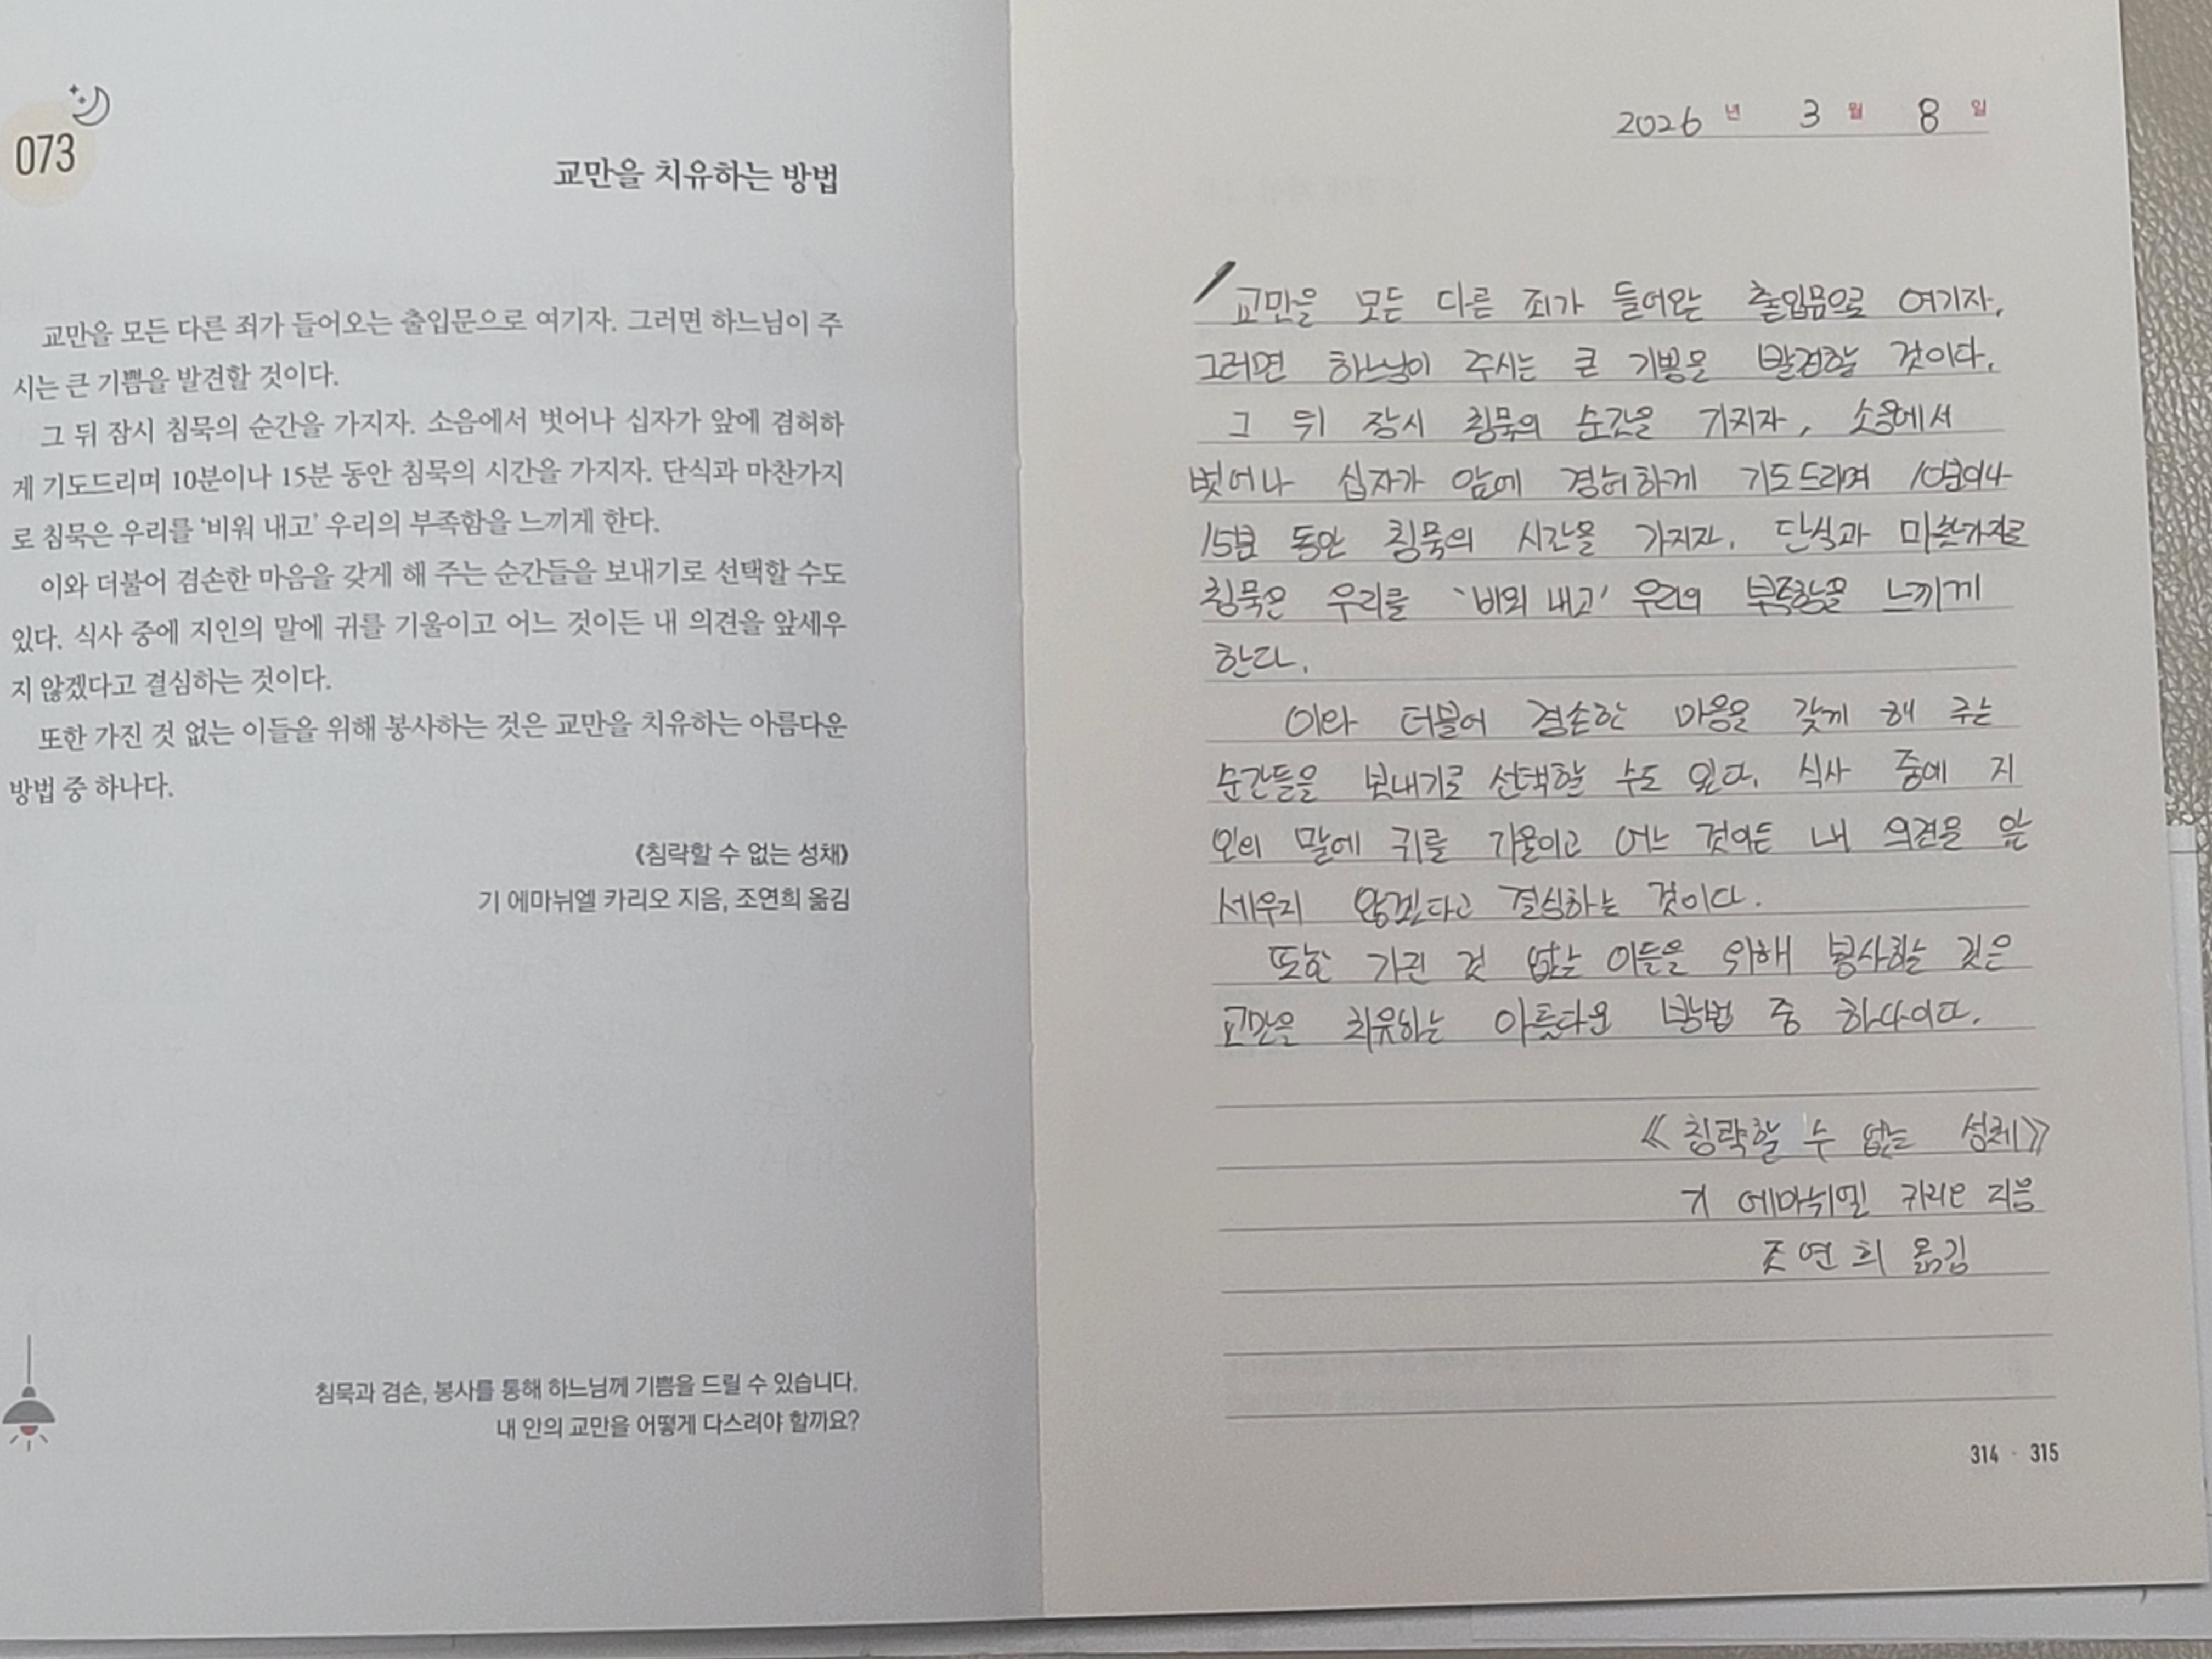 073
교만을 치유하는 방법
교만을 모든 다른 죄가 들어오는 출입문으로 여기자. 그러면 하느님이 주
시는 큰 기쁨을 발견할 것이다.
그 뒤 잠시 침묵의 순간을 가지자. 소음에서 벗어나 십자가 앞에 겸허하
게 기도드리며 10분이나 15분 동안 침묵의 시간을 가지자. 단식과 마찬가지
로 침묵은 우리를 '비워 내고' 우리의 부족함을 느끼게 한다.
이와 더불어 겸손한 마음을 갖게 해 주는 순간들을 보내기로 선택할 수도
있다. 식사 중에 지인의 말에 귀를 기울이고 어느 것이든 내 의견을 앞세우
지 않겠다고 결심하는 것이다.
또한 가진 것 없는 이들을 위해 봉사하는 것은 교만을 치유하는 아름다운
방법 중 하나다.
《침략할 수 없는 성채》
기 에마뉘엘 카리오 지음, 조연희 옮김
침묵과 겸손, 봉사를 통해 하느님께 기쁨을 드릴 수 있습니다.
내 안의 교만을 어떻게 다스려야 할까요?
2026 년 3 월 8 일
교만을 모든 다른 죄가 들어오는 출입문으로 여기자.
그러면 하느님이 주시는 큰 기쁨을 발견할 것이다.
그 뒤 잠시 침묵의 순간을 가지자. 소음에서
벗어나 십자가 앞에 겸허하게 기도드리며 10분이나
15분 동안 침묵의 시간을 가지자. 단식과 마찬가지로
침묵은 우리를 '비워 내고' 우리의 부족함을 느끼게
한다.
이와 더불어 겸손한 마음을 갖게 해 주는
순간들을 보내기로 선택할 수도 있다. 식사 중에 지
인의 말에 귀를 기울이고 어느 것이든 내 의견을 앞
세우지 않겠다고 결심하는 것이다.
또한 가진 것 없는 이들을 위해 봉사하는 것은
교만을 치유하는 아름다운 방법 중 하나이다.
《침략할 수 없는 성채》
기 에마뉘엘 카리오 지음
조연희 옮김
314 · 315